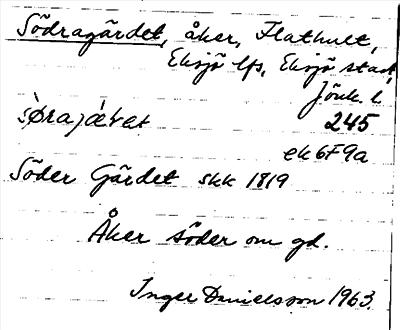 Södragärdet, åker, Flathult,
Eksjö lfs, Eksjö stad,
Jönk. l.
sø̀rajǽʈet 245
ek6F9a
Söder Gärdet skk 1819
Åker söder om gd.
Inger Danielsson 1963.